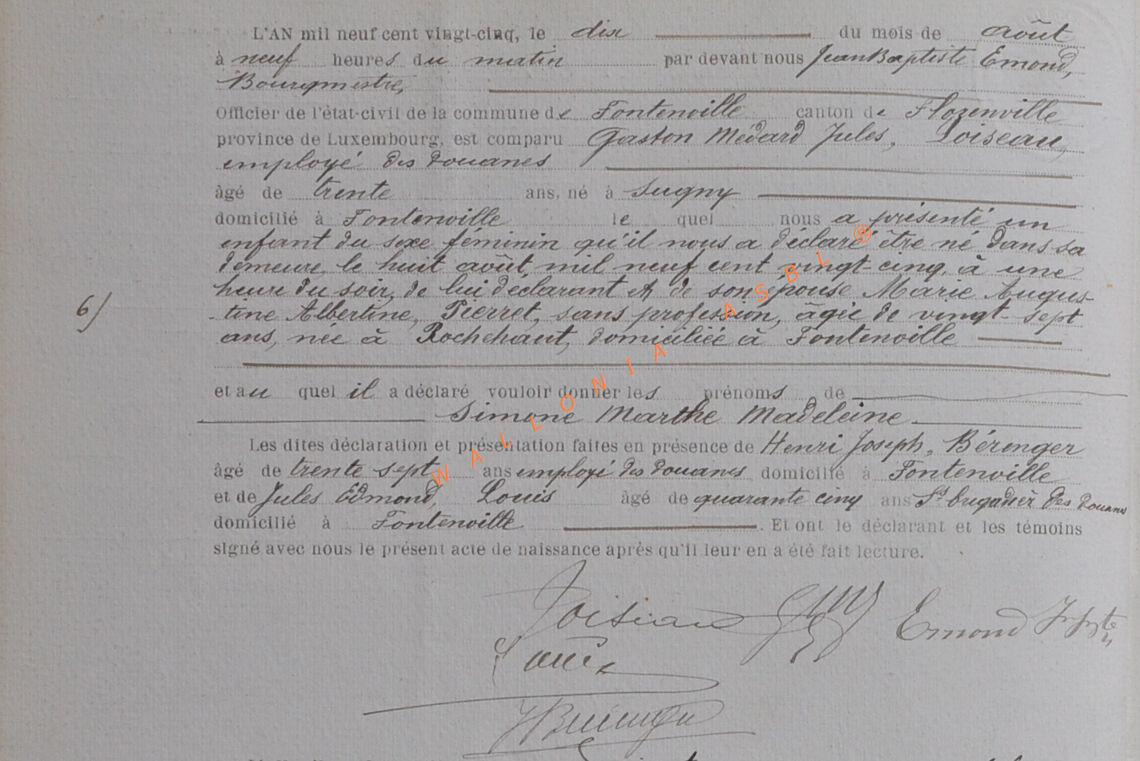 L'AN mil neuf cent vingt-cinq, le dix du mois de août
à neuf heures du matin par devant nous Jean Baptiste Emond,
Bourgmestre,
Officier de l'état-civil de la commune de Fontenoille canton de Florenville
province de Luxembourg, est comparu Gaston Médard Jules, Loiseau,
employé des douanes
âgé de trente ans, né à Sugny
domicilié à Fontenoille le quel nous a présenté un
enfant du sexe féminin qu'il nous a déclaré être né dans sa
demeure, le huit août, mil neuf cent vingt-cinq, à une
heure du soir, de lui déclarant et de son épouse Marie Augus-
6/ tine Albertine, Pierret, sans profession, âgée de vingt-sept
ans, née à Rochehaut, domiciliée à Fontenoille
et au quel il a déclaré vouloir donner les prénoms de
Simone Marthe Madeleine
Les dites déclaration et présentation faites en présence de Henri Joseph, Bérenger
âgé de trente sept ans employé des douanes domicilié à Fontenoille
et de Jules Edmond, Louis âgé de quarante cinq ans Ss brigadier des Douanes
domicilié à Fontenoille . Et ont le déclarant et les témoins
signé avec nous le présent acte de naissance après qu'il leur en a été fait lecture.
Loiseau Emond
Louis
Bérenger
WALLONIA ASBL ®